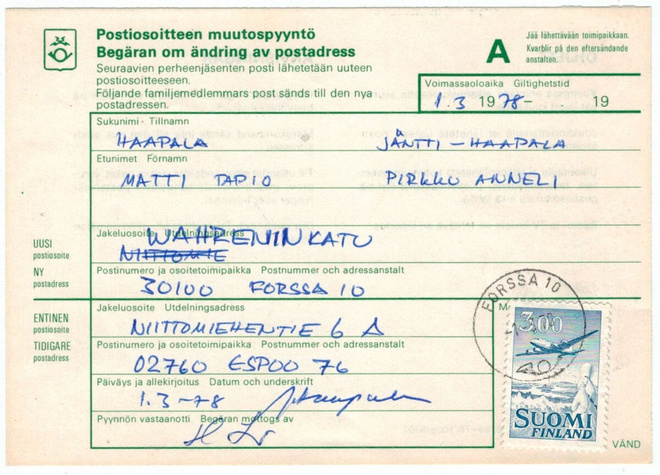 Postiosoitteen muutospyyntö
Begäran om ändring av postadress
Seuraavien perheenjäsenten posti lähetetään uuteen
postiosoitteeseen.
Följande familjemedlemmars post sänds till den nya
postadressen.
A
Jää lähettävään toimipaikkaan.
Kvarblir på den eftersändande
anstalten.
Voimassaoloaika Giltighetstid
1.3 1978- 19
Sukunimi - Tillnamn
HAAPALA JÄNTTI-HAAPALA
Etunimet Förnamn
MATTI TAPIO PIRKKO ANNELI
UUSI
postiosoite
NY
postadress
Jakeluosoite Utdelningsadress
WAHRENINKATU
NIITTOMIE
Postinumero ja osoitetoimipaikka Postnummer och adressanstalt
30100 FORSSA 10
ENTINEN
postiosoite
TIDIGARE
postadress
Jakeluosoite Utdelningsadress
NIITTOMIEHENTIE 6 A
Postinumero ja osoitetoimipaikka Postnummer och adressanstalt
02760 ESPOO 76
Päiväys ja allekirjoitus Datum och underskrift
1.3-78
Pyynnön vastaanotti Begäran mottogs av
FORSSA 10
3.00
SUOMI
FINLAND
VÄND